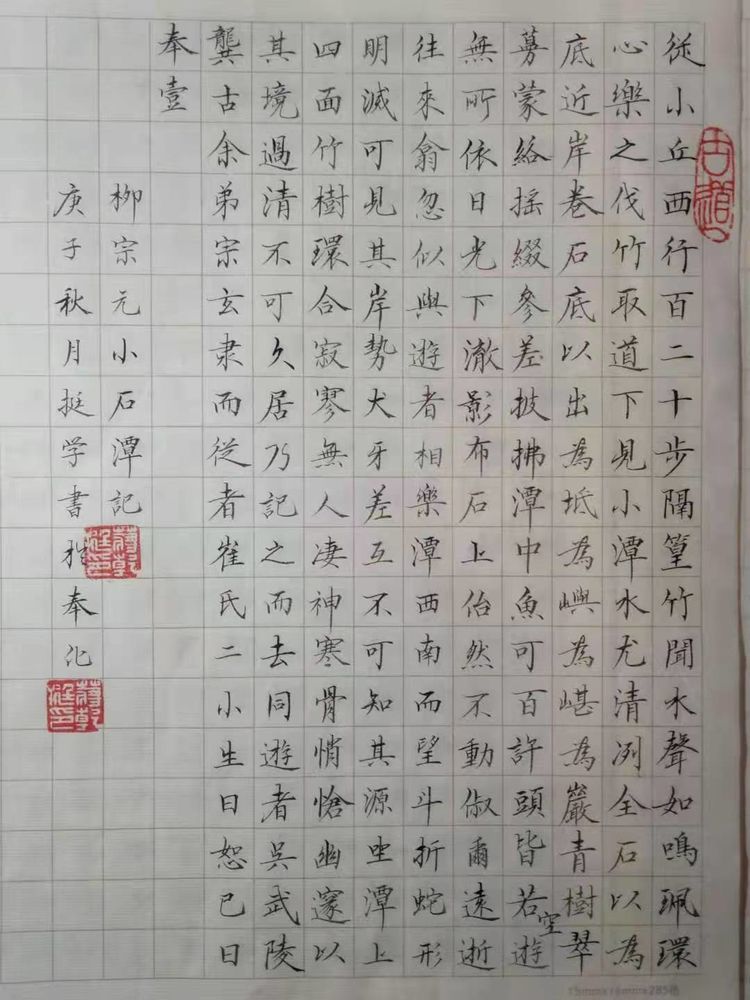 從小丘西行百二十步隔篁竹聞水聲如鳴珮環
心樂之伐竹取道下見小潭水尤清冽全石以為
底近岸卷石底以出為坻為嶼為嵁為巖青樹翠
蔓蒙絡摇綴參差披拂潭中魚可百許頭皆若空遊
無所依日光下澈影布石上佁然不動俶爾遠逝
往來翕忽似與遊者相樂潭西南而望斗折蛇形
明滅可見其岸勢犬牙差互不可知其源坐潭上
四面竹樹環合寂寥無人凄神寒骨悄愴幽邃以
其境過清不可久居乃記之而去同遊者吳武陵
龔古余弟宗玄隶而從者崔氏二小生曰恕已曰
奉壹
柳宗元小石潭記
庚子秋月挺学書於奉化